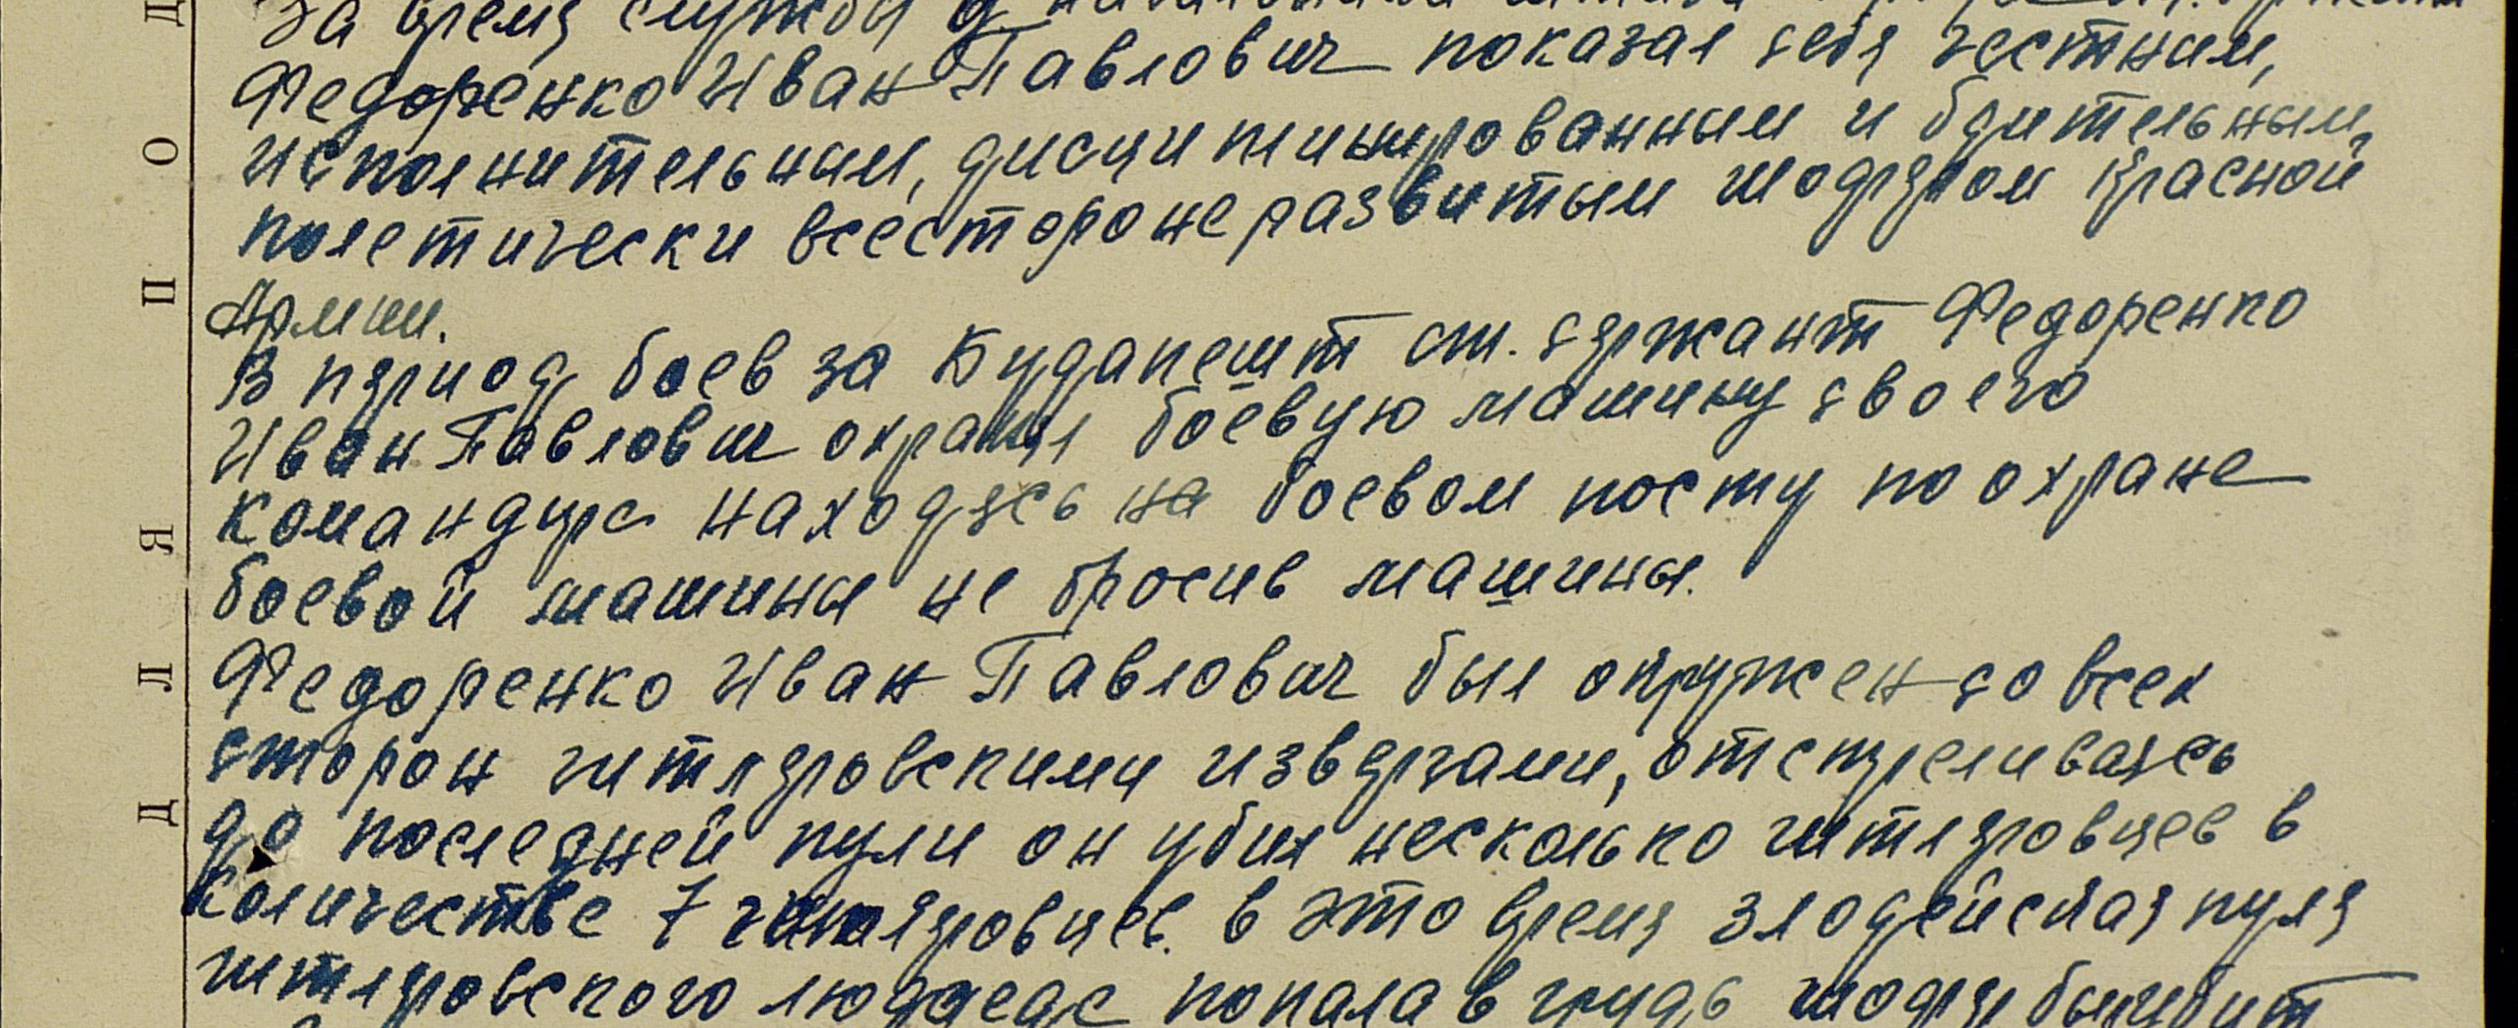 За время службы у
Федоренко Иван Павлович показал себя честным,
исполнительным, дисциплинированным и бдительным,
полетически всесторонеразвитым шофером Красной
Армии.
В период боев за Будапешт ст. сержант Федоренко
Иван Павлович охранял боевую машину своего
командира находясь на боевом посту по охране
боевой машины не бросив машины.
Федоренко Иван Павлович был окружен со всех
сторон гитлеровскими извергами, отстреливаясь
до последней пули он убил несколько гитлеровцев в
количестве 7 гитлеровцев. в это время злодейская пуля
гитлеровского людоеда попала в грудь шофер был убит
ДЛЯ ПОД